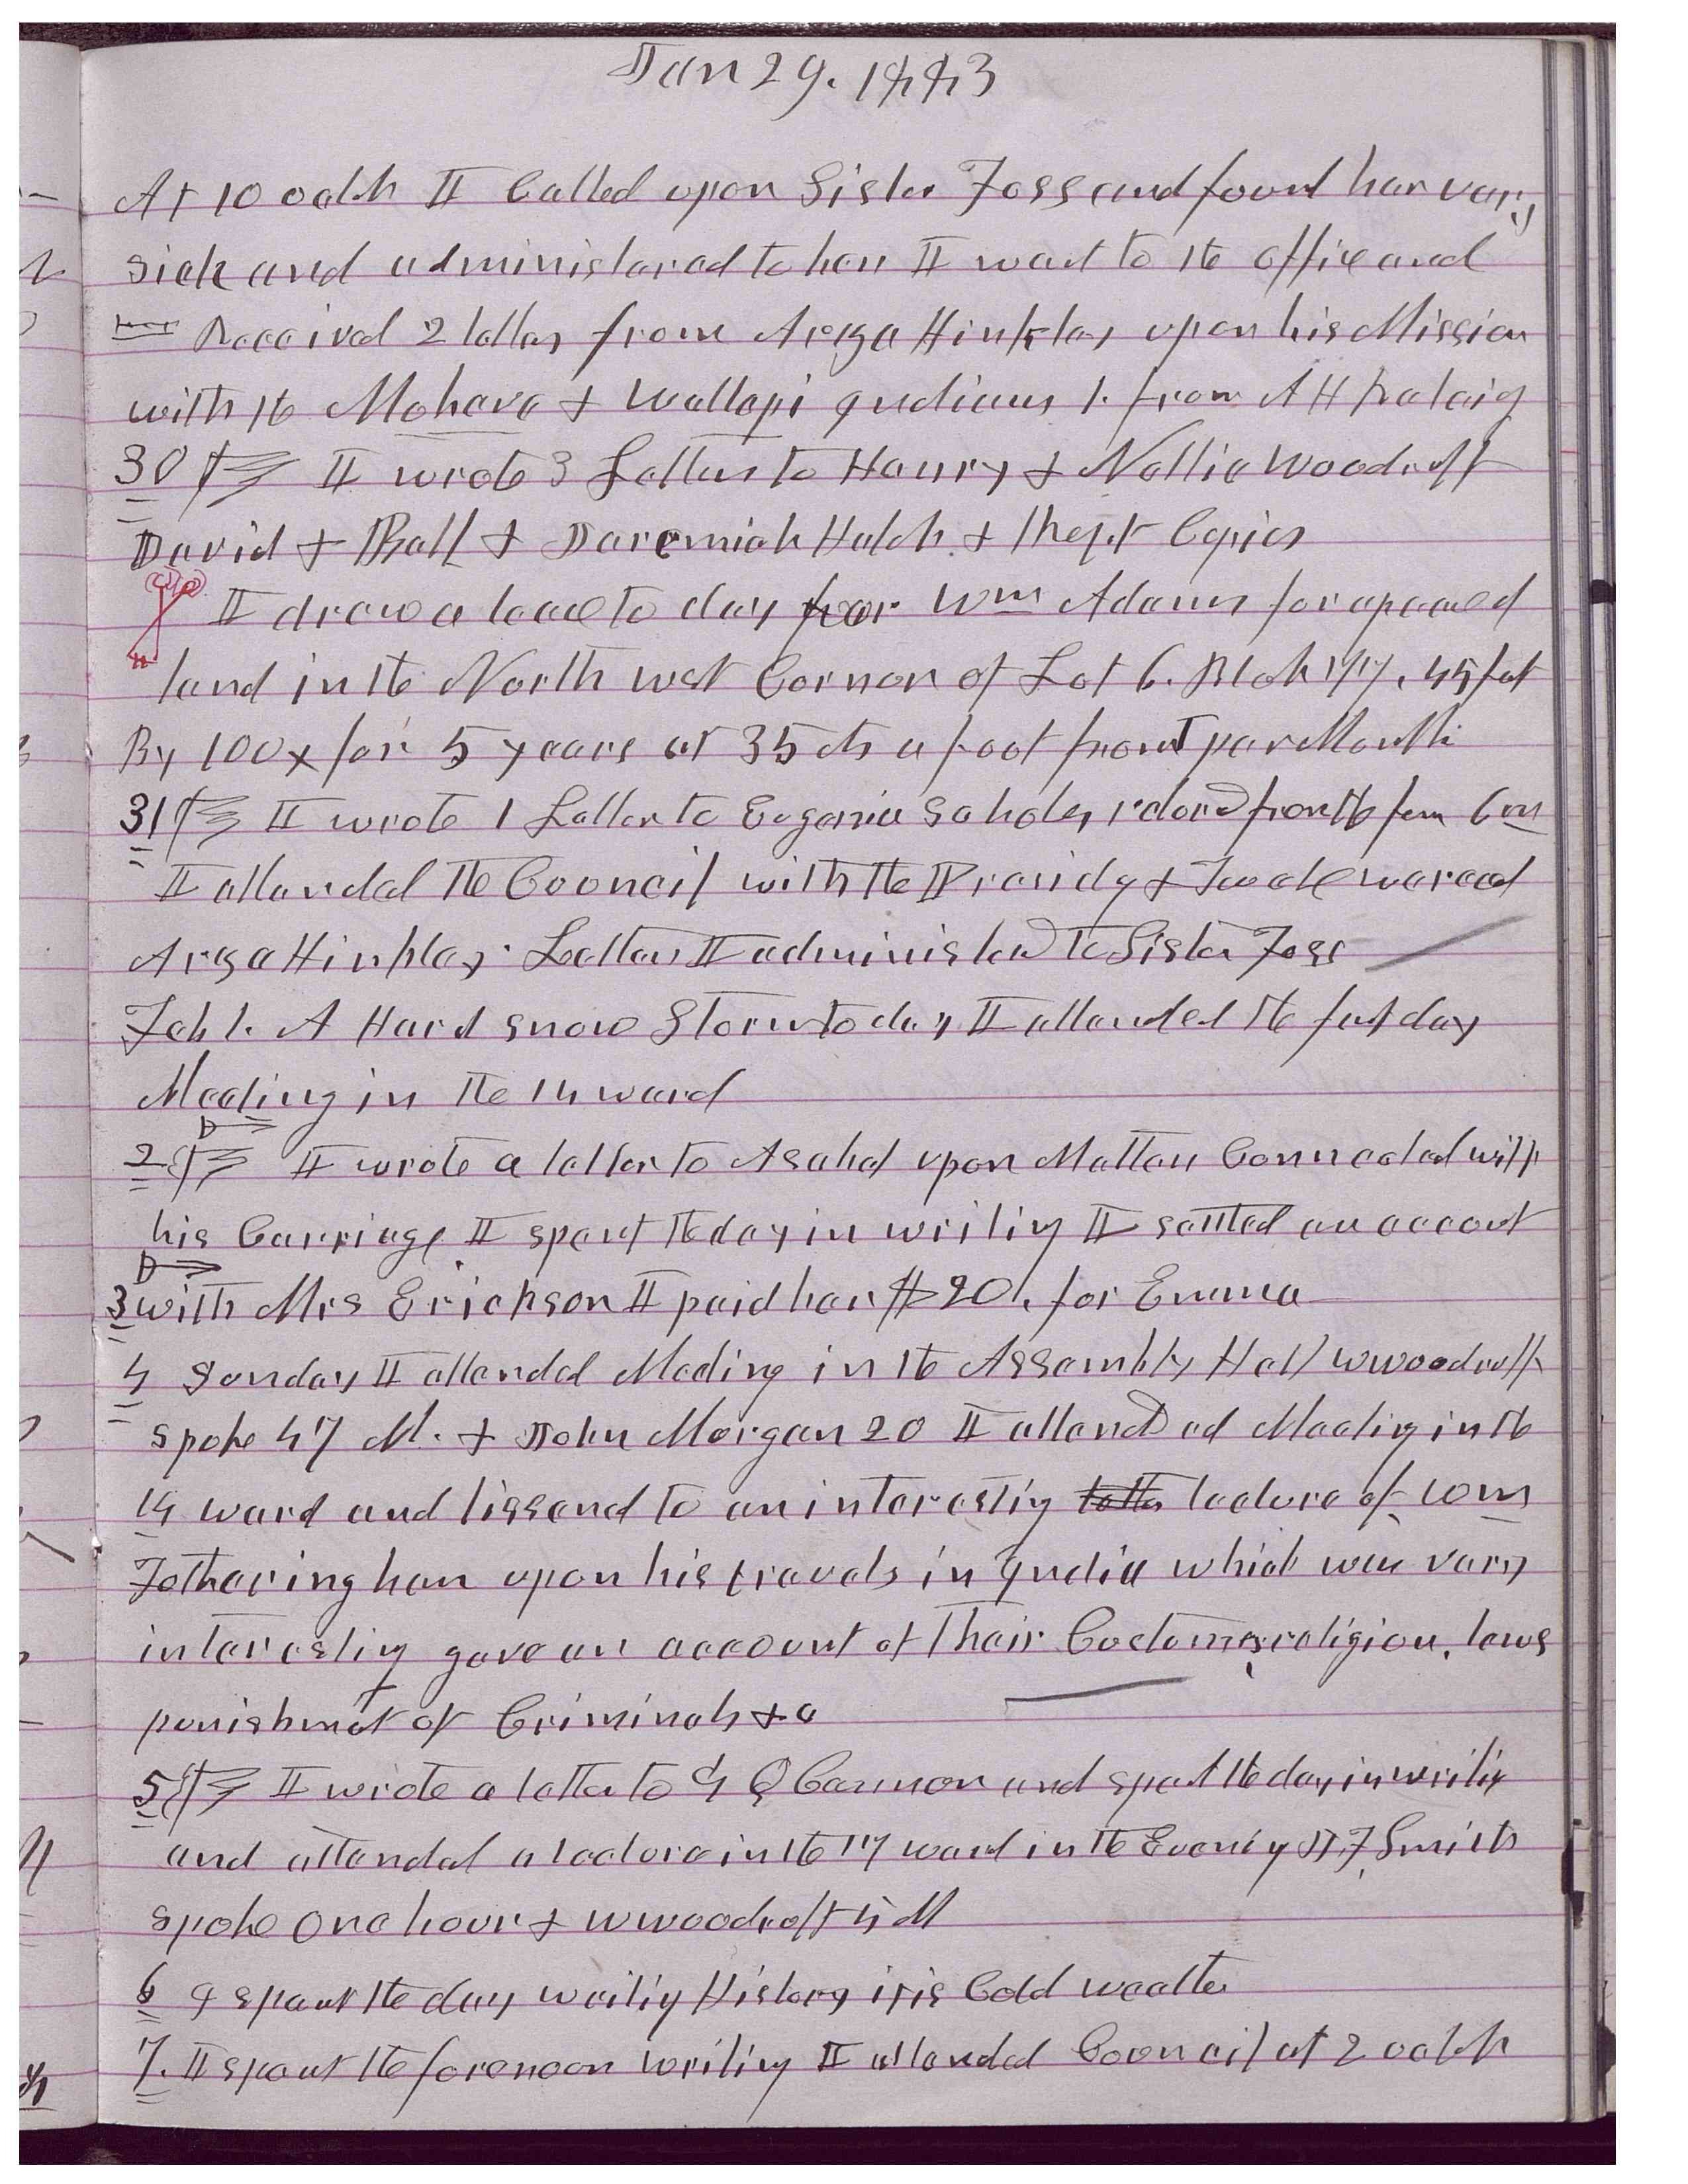 Jan 29. 1883
At 10 oclk I Called upon Sister Foss and found her very
sick and administered to her I went to the office and
Received 2 letters from Arza Hinkley upon his Mission
with the Mohave & Wallapi Indians 1. from A H Raleigh
30 I wrote 3 Letters to Henry & Nellie Woodruff
David & Bell & Jeremiah Hatch & Kept Copies
I drew a leace to day for Wm Adams for apeace of
land in the North west Cornor of Lot 6. Block 77. 45 feet
By 100 x for 5 years at 35 cts a foot front per Month
31 I wrote 1 Letter to Eugenia I de from the farm 6 m
I attended the Council with the Presidy & Twelve we read
Arza Hinkley Letters I administerd to Sister Foss
Feb 1. A Hard snow Storm to day I attended the fast day
Meeting in the 14 ward
2 I wrote a letter to Asahel upon Matters Connected with
his Carriage I spent the day in writing I settled an account
3 with Mrs Erickson I paid her $20. for Emma
4 Sunday I attended Meeting in the Assembly Hall W Woodruff
spoke 47 M. & John Morgan 20 I attended Meeting in the
14 ward and lissened to an interesting lecture of Wm
Fotheringham upon his travels in India which was very
interesting gave an account of their Customs, religion, laws
punishment of Criminals &c
5 I wrote a letter to G Q Cannon and spent the day in writing
and attended a lecture in the 17 ward in the Evening J. F Smith
spoke one hour & W Woodruff 4 M
6 I spent the day writing History it is Cold weather
7. I spent the forenoon writing I attended Council at 2 oclok